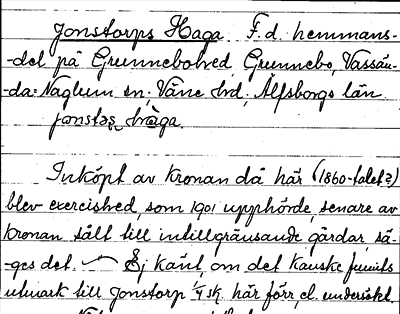 Jonstorps Haga F.d. hemmans-
-del på Grunnebohed, Grunnebo, Vassän-
-da-Naglum sn, Väne hrd, Älfsborgs län
jonstəs haga.
Inköpt av Kronan då här (1860-talet?)
blev exercished, som 1901 upphörde, senare av
Kronan sålt till intillgränsande gårdar, sä-
-ges det. — Ej känt, om det kanske funnits
utmark till Jonstorp 1/4 sk. här förr, el. undersökt.